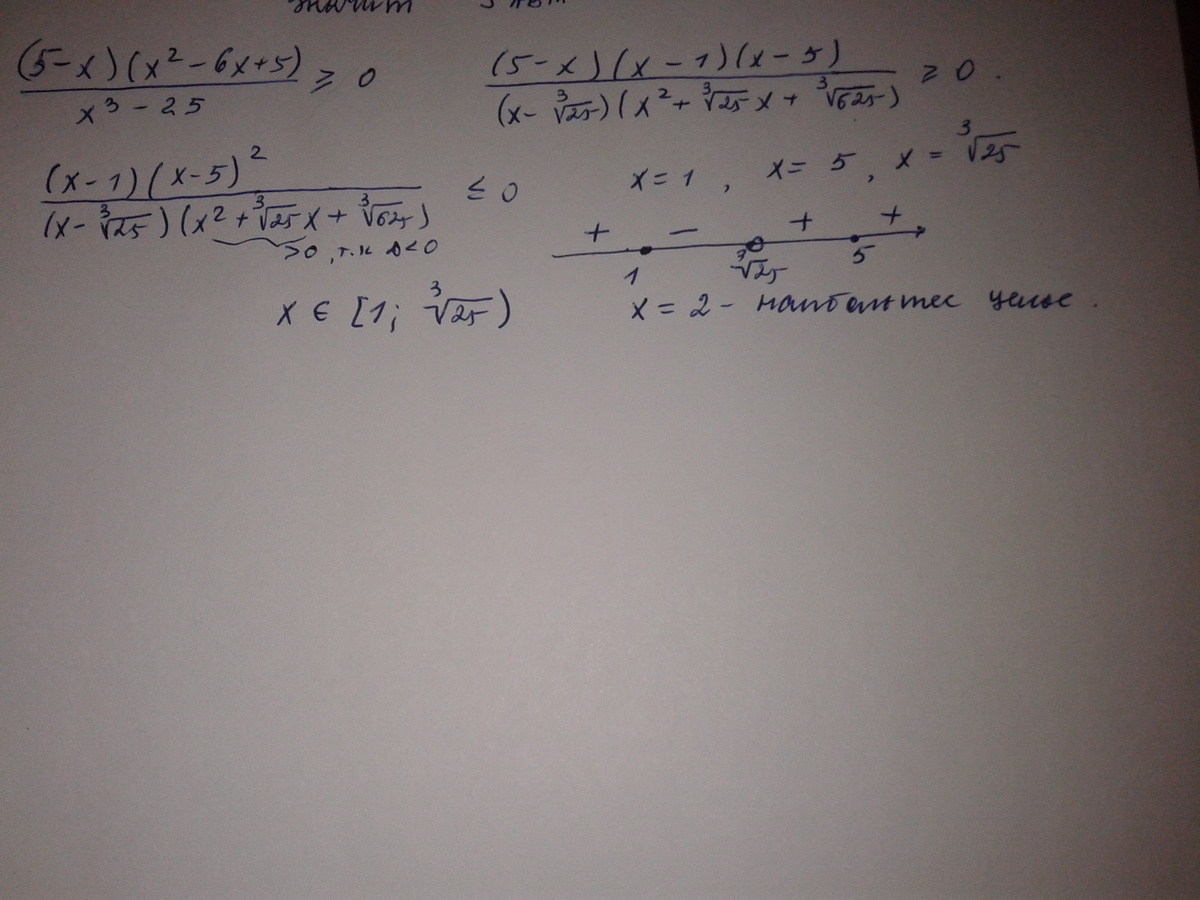 значит
(5-x)(x² - 6x+5) / x³ - 25 ≥ 0
(5-x)(x-1)(x-5) / (x-∛25)(x²+∛25x+∛625) ≥ 0.
(x-1)(x-5)² / (x-∛25)(x²+∛25x+∛625) ≤ 0
>0, т.к D<0
x=1, x=5, x=∛25
+ - + +
1 ∛25 5
x ∈ [1; ∛25)
x = 2 - наибольшес целые.